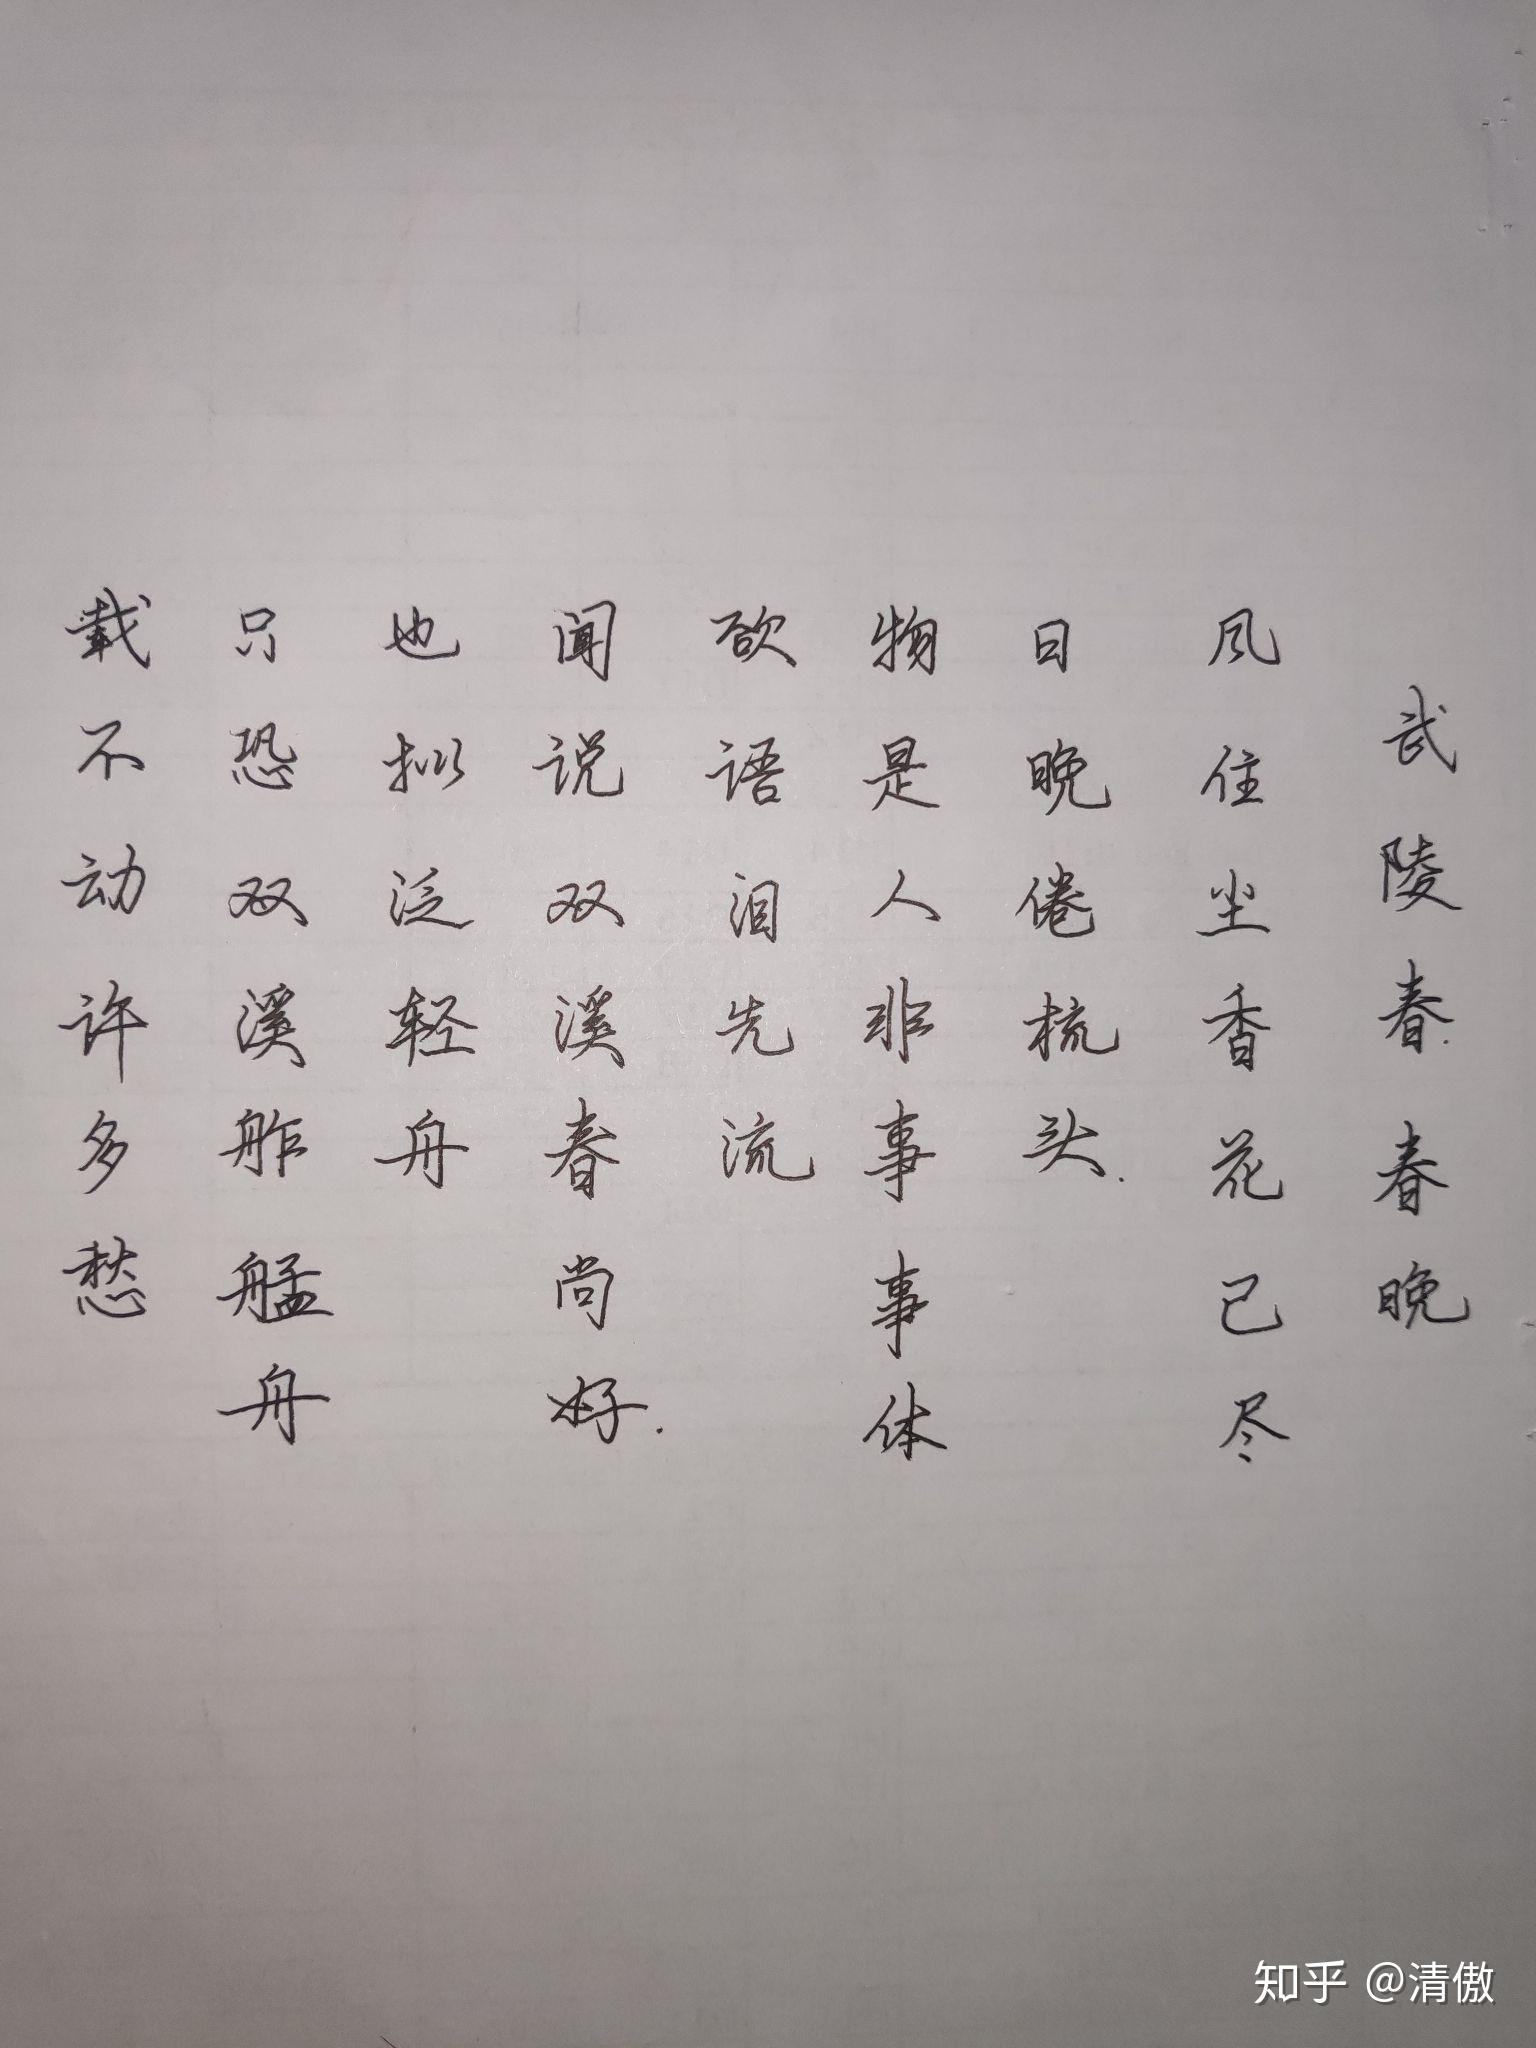 武陵春.春晚
风住尘香花已尽
日晚倦梳头.
物是人非事事体
欲语泪先流
闻说双溪春尚好.
也拟泛轻舟
只恐双溪舴艋舟
载不动许多愁
知乎 @清傲